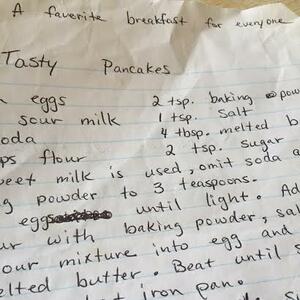 A faverite breakfast for everyone
Tasty Pancakes
eggs 2 tsp. baking pow
sour milk 1 tsp. salt
oda 4 tbsp. melted b
ps flour 2 tsp. sugar
eet milk is used, omit soda a
g powder to 3 teaspoons.
eggs until light. Ad
ur with baking powder, sal
our mixture into egg and
elted butter. Beat until s
t iron pan.